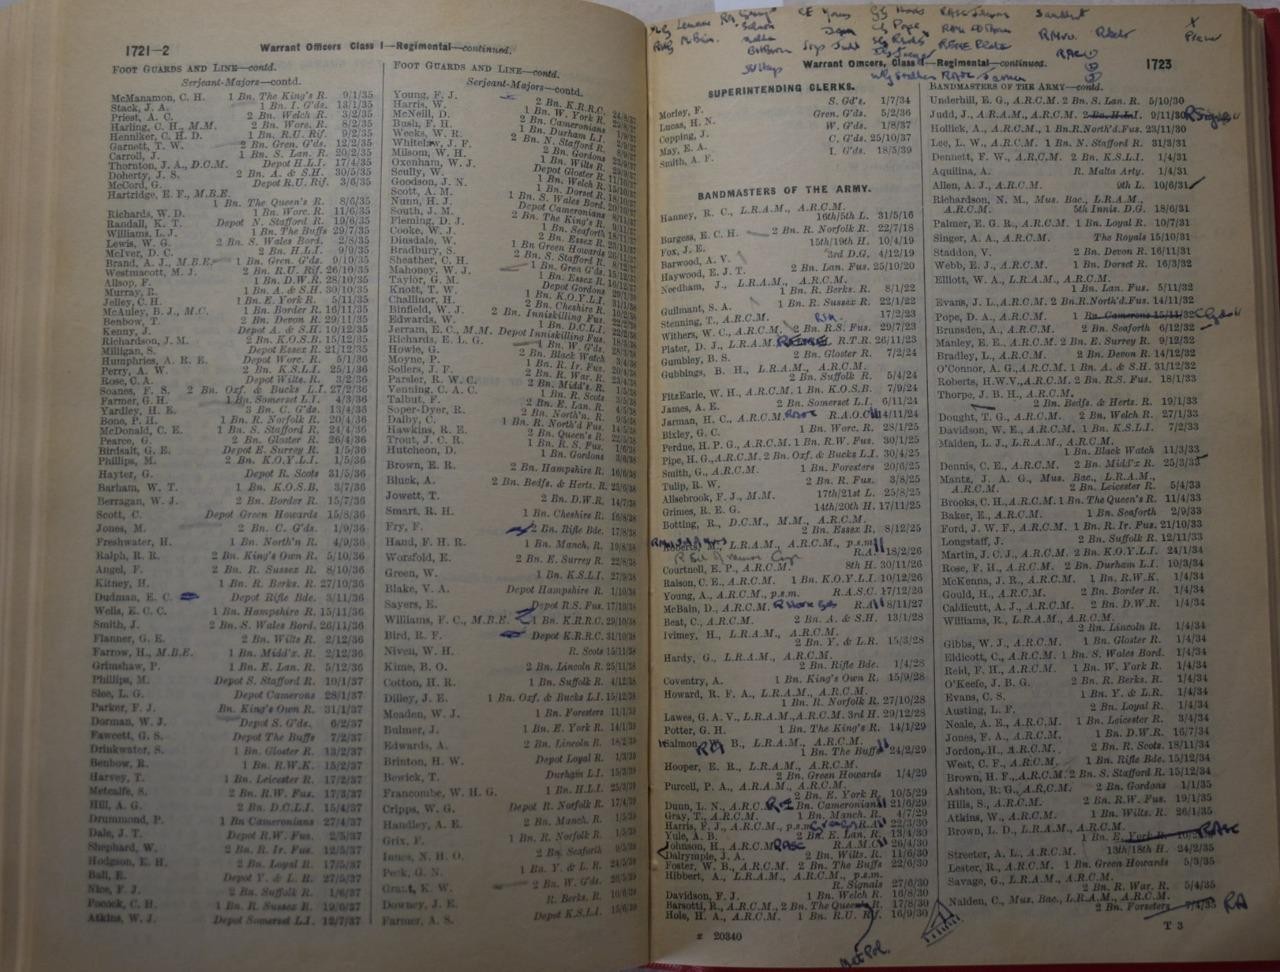 1721—2
Warrant Officers Class I—Regimental—continued.
FOOT GUARDS AND LINE—contd.
Serjeant-Majors—contd.
McManamon, C. H. 1 Bn. The King's R. 9/1/35
Stack, J. A. 1 Bn. I. G'ds. 13/1/35
Priest, A. C. 2 Bn. Welch R. 3/2/35
Harling, C. H., M.M. 2 Bn. Worc. R. 8/2/35
Henniker, C. H. D. 1 Bn. R.U. Rif. 9/2/35
Garnett, T. W. 2 Bn. Gren. G'ds. 12/2/35
Carroll, J. 1 Bn. S. Lan. R. 20/2/35
Thornton, J. A., D.C.M. Depot H.L.I. 17/4/35
Doherty, J. S. 2 Bn. A. & S.H. 30/5/35
McCord, G. Depot R.U. Rif. 3/6/35
Hartridge, E. F., M.B.E.
1 Bn. The Queen's R. 8/6/35
Richards, W. D. 1 Bn. Worc. R. 11/6/35
Randall, K. T. Depot N. Stafford R. 19/6/35
Williams, L. J. 1 Bn. The Buffs 29/7/35
Lewis, W. G. 2 Bn. S. Wales Bord. 2/8/35
McIver, D. C. 2 Bn. H.L.I. 9/9/35
Brand, A. J., M.B.E. 1 Bn. Gren. G'ds. 9/10/35
Westmacott, M. J. 2 Bn. R.U. Rif. 26/10/35
Allsop, F. 1 Bn. D.W.R. 28/10/35
Murray, R. 1 Bn. A. & S.H. 30/10/35
Jelley, C. H. 1 Bn. E. York R. 5/11/35
McAuley, B. J., M.C. 1 Bn. Border R. 16/11/35
Benbow, T. 2 Bn. Devon R. 29/11/35
Kenny, J. Depot A. & S.H. 10/12/35
Richardson, J. M. 2 Bn. K.O.S.B. 15/12/35
Milligan, S. Depot Essex R. 21/12/35
Humphries, A. R. E. Depot Worc. R. 5/1/36
Perry, A. W. 2 Bn. K.S.L.I. 25/1/36
Rose, C. A. Depot Wilts. R. 3/2/36
Soanes, F. S. 2 Bn. Oxf. & Bucks L.I. 27/2/36
Farmer, G. H. 1 Bn. Somerset L.I. 4/3/36
Yardley, H. E. 3 Bn. C. G'ds. 13/4/36
Bone, P. H. 1 Bn. R. Norfolk R. 20/4/36
McDonald, C. E. 1 Bn. S. Stafford R. 24/4/36
Pearce, G. 2 Bn. Gloster R. 26/4/36
Birdsalt, G. E. Depot E. Surrey R. 1/5/36
Phillips, M. 2 Bn. K.O.Y.L.I. 1/5/36
Hayter, G. Depot R. Scots 31/5/36
Barham, W. T. 1 Bn. K.O.S.B. 3/7/36
Berragan, W. J. 2 Bn. Border R. 15/7/36
Scott, C. Depot Green Howards 15/8/36
Jones, M. 2 Bn. C. G'ds. 1/9/36
Freshwater, H. 1 Bn. North'n R. 4/9/36
Ralph, R. R. 2 Bn. King's Own R. 5/10/36
Angel, F. 2 Bn. R. Sussex R. 8/10/36
Kitney, H. 1 Bn. R. Berks. R. 27/10/36
Dudman, E. C. Depot Rifle Bde. 3/11/36
Wells, E. C. C. 1 Bn. Hampshire R. 15/11/36
Smith, J. 2 Bn. S. Wales Bord. 26/11/36
Flanner, G. E. 2 Bn. Wilts R. 2/12/36
Farrow, H., M.B.E. 1 Bn. Midd'x R. 2/12/36
Grimshaw, P. 1 Bn. E. Lan. R. 5/12/36
Phillips, M. Depot S. Stafford R. 10/1/37
Slee, L. G. Depot Camerons 28/1/37
Parker, F. J. Bn. King's Own R. 31/1/37
Dorman, W. J. Depot S. G'ds. 6/2/37
Fawcett, G. S. Depot The Buffs 7/2/37
Drinkwater, S. 1 Bn. Gloster R. 13/2/37
Benbow, R. 1 Bn. R.W.K. 15/2/37
Harvey, T. 1 Bn. Leicester R. 17/2/37
Metcalfe, S. 2 Bn. R.W. Fus. 17/3/37
Hill, A. G. 2 Bn. D.C.L.I. 15/4/37
Drummond, P. 1 Bn Camerons 27/4/37
Dale, J. T. Depot R.W. Fus. 2/5/37
Shephard, W. 2 Bn. R. Ir. Fus. 12/5/37
Hodgson, E. H. 2 Bn. Loyal R. 17/5/37
Ball, E. Depot Y. & L.R. 27/5/37
Nice, F. J. 2 Bn. Suffolk R. 1/6/37
Pocock, C. H. 1 Bn. R. Sussex R. 19/6/37
Atkins, W. J. Depot Somerset L.I. 12/7/37
FOOT GUARDS AND LINE—contd.
Serjeant-Majors—contd.
Young, F. J. 2 Bn. K.R.R.C.
Harris, W. 1 Bn. W. York R.
McNeill, D. 2 Bn. Cameronians
Bush, F. H. 1 Bn. Durham L.I.
Weeks, W. R. 2 Bn. N. Stafford R.
Whitelaw, J. F. 2 Bn. Gordons
Milsom, W. H. 2 Bn. Wilts R.
Oxenham, W. J. Depot Gloster R.
Scully, W. 1 Bn. Welch R.
Goodson, J. N. 1 Bn. Dorset R.
Scott, A. M. 1 Bn. S. Wales Bord.
Nunn, H. J. Depot Cameronians
South, J. M. 2 Bn. The King's R.
Fleming, D. J. 1 Bn. Seaforth
Cooke, W. J. 2 Bn. Essex R.
Dinsdale, W. 1 Bn Green Howards
Bradbury, S. 2 Bn. S. Stafford R.
Sheather, C. H. 1 Bn. Gren G'ds.
Mahoney, W. J. 1 Bn. Essex R.
Taylor, G. M. Depot Gordons
Knott, T. W. 1 Bn. K.O.Y.L.I.
Challinor, H. 2 Bn. Cheshire R.
Binfield, W. J. 2 Bn. Inniskilling Fus.
Edwards, W. 1 Bn. D.C.L.I.
Jerram, E. C., M.M. Depot Inniskilling Fus.
Richards, E. L. G. 1 Bn. W. G'ds.
Howie, G. 2 Bn. Black Watch
Moyne, P. 1 Bn. R. Ir. Fus.
Sollers, J. F. 2 Bn. R. War. R.
Parsler, R. W. C. 2 Bn. Midd'x R.
Venning, C. A. C. 1 Bn. R. Scots
Talbut, F. 2 Bn. E. Lan. R.
Soper-Dyer, R. 2 Bn. North'n. R.
Dalby, C. 1 Bn. R. North'd Fus.
Hawkins, R. E. 2 Bn. Queen's R.
Trout, J. C. R. 1 Bn. R. S. Fus.
Hutcheon, D. 1 Bn. Gordons
Brown, E. R. 2 Bn. Hampshire R.
Bluck, A. 2 Bn. Bedfs. & Herts. R.
Jowett, T. 2 Bn. D.W.R.
Smart, R. H. 1 Bn. Cheshire R.
Fry, F. 2 Bn. Rifle Bde. 17/8/38
Hand, F. H. R. 1 Bn. Manch. R. 19/8/38
Worsfold, E. 2 Bn. E. Surrey R. 22/8/38
Green, W. 1 Bn. K.S.L.I. 27/9/38
Blake, V. A. Depot Hampshire R. 1/10/38
Sayers, E. Depot R.S. Fus. 17/10/38
Williams, F. C., M.B.E. 1 Bn. K.R.R.C. 29/10/38
Bird, R. F. Depot K.R.R.C. 31/10/38
Niven, W. H. R. Scots 15/11/38
Kime, B. O. 2 Bn. Lincoln R. 25/11/38
Cotton, H. R. 1 Bn. Suffolk R. 4/12/38
Dilley, J. E. 1 Bn. Oxf. & Bucks L.I. 15/12/38
Meaden, W. J. 1 Bn. Foresters 11/1/39
Bulmer, J. 1 Bn. E. York R. 14/1/39
Edwards, A. 2 Bn. Lincoln R. 18/2/39
Brinton, W. H. Depot Loyal R. 1/3/39
Bewick, T. Durham L.I. 15/3/39
Francombe, W. H. G. 1 Bn. H.L.I. 25/3/39
Cripps, W. G. Depot R. Norfolk R. 17/4/39
Handley, A. E. 2 Bn. Manch. R. 1/5/39
Grix, F. 1 Bn. R. Norfolk R. 1/5/39
Innes, N. H. O. 2 Bn. Seaforth 9/5/39
Peck, G. N. 1 Bn. Y. & L. R. 24/5/39
Grant, K. W. 2 Bn. W. G'ds. 26/5/39
Downey, J. E. R. Berks. R. 10/6/39
Farmer, A. S. Depot K.S.L.I. 15/6/39
Warrant Officers, Class I—Regimental—continued.
1723
SUPERINTENDING CLERKS.
Morley, F. S. Gd's. 1/7/34
Lucas, H. N. Gren. G'ds. 5/2/36
Copping, J. W. G'ds. 1/8/37
May, E. A. C. G'ds. 25/10/37
Smith, A. F. I. G'ds. 18/5/39
BANDMASTERS OF THE ARMY.
Hanney, R. C., L.R.A.M., A.R.C.M.
16th/5th L. 31/5/16
Burgess, E. C. H. 2 Bn. R. Norfolk R. 22/7/18
Fox, J. E. 15th/19th H. 10/4/19
Barwood, A. V. 3rd D.G. 4/12/19
Haywood, E. J. T. 2 Bn. Lan. Fus. 25/10/20
Needham, J., L.R.A.M., A.R.C.M.
1 Bn. R. Berks. R. 8/1/22
Gulimant, S. A. 1 Bn. R. Sussex R. 22/1/22
Stenning, T., A.R.C.M. 17/2/23
Withers, W. C., A.R.C.M. 2 Bn. R.S. Fus. 29/7/23
Plater, D. J., L.R.A.M. R.T.R. 26/11/23
Gumbley, B. S. 2 Bn. Gloster R. 7/2/24
Gubbings, B. H., L.R.A.M., A.R.C.M.
2 Bn. Suffolk R. 5/4/24
FitzEarle, W. H., A.R.C.M. 1 Bn. K.O.S.B. 7/9/24
James, A. E. 2 Bn. Somerset L.I. 6/11/24
Jarman, H. C., A.R.C.M. RAOC R.A.O.C. 14/11/24
Bixley, G. C. 1 Bn. Worc. R. 28/1/25
Perdue, H. P. G., A.R.C.M. 1 Bn. R.W. Fus. 30/1/25
Pipe, H. G., A.R.C.M. 2 Bn. Oxf. & Bucks L.I. 30/4/25
Smith, G., A.R.C.M. 1 Bn. Foresters 20/6/25
Tulip, R. W. 2 Bn. R. Fus. 3/8/25
Allsebrook, F. J., M.M. 17th/21st L. 25/8/25
Grimes, R. E. G. 14th/20th H. 17/11/25
Botting, R., D.C.M., M.M., A.R.C.M.
2 Bn. Essex R. 8/12/25
Roberts, M., L.R.A.M., A.R.C.M., p.s.m.
R.A. 18/2/26
Courtnell, E. P., A.R.C.M. 8th H. 30/11/26
Raison, C. E., A.R.C.M. 1 Bn. K.O.Y.L.I. 10/12/26
Young, A., p.s.m. R.A.S.C. 17/12/26
McBain, D., A.R.C.M. R.A. 8/11/27
Beat, C., A.R.C.M. 2 Bn. A. & S.H. 13/1/28
Ivimey, H., L.R.A.M., A.R.C.M.
2 Bn. Y. & L.R. 15/3/28
Hardy, G., L.R.A.M., A.R.C.M.
2 Bn. Rifle Bde. 1/4/28
Coventry, A. 1 Bn. King's Own R. 15/9/28
Howard, R. F. A., L.R.A.M., A.R.C.M.
1 Bn. R. Norfolk R. 27/10/28
Lawes, G. A. V., L.R.A.M., A.R.C.M. 3rd H. 29/12/28
Potter, G. H. 1 Bn. The King's R. 14/1/29
Salmon, B., L.R.A.M., A.R.C.M. RA
1 Bn. The Buffs 24/2/29
Hooper, E. R., L.R.A.M., A.R.C.M.
2 Bn. Green Howards 1/4/29
Purcell, P. A., A.R.A.M., A.R.C.M.
2 Bn. E. York R. 10/5/29
Dunn, L. N., A.R.C.M. Bn. Cameronian 21/6/29
Gray, T., A.R.C.M. 1 Bn. Manch. R. 4/7/29
Harris, F. J., A.R.C.M., p.s.m. R.A. 22/3/30
Yule, A. B. 2 Bn. E. Lan. R. 13/4/30
Johnson, H., A.R.C.M. RASC R.A.M.C. 26/4/30
Dalrymple, J. A. 2 Bn. Wilts. R. 11/6/30
Foster, W. P., A.R.C.M. 2 Bn. The Buffs 22/6/30
Hibbert, A., L.R.A.M., A.R.C.M., p.s.m.
R. Signals 27/6/30
Davidson, F. J. 1 Bn. Welch R. 16/8/30
Barsotti, R., A.R.C.M., 2 Bn. The Queen's R. 17/8/30
Hole, H. A., A.R.C.M. 1 Bn. R.U. Rif. 16/9/30
Met Pol.
z 20340
BANDMASTERS OF THE ARMY—contd.
Underhill, E. G., A.R.C.M. 2 Bn. S. Lan. R. 5/10/30
Judd, J., A.R.A.M., A.R.C.M. 2 Bn. H.L.I. 9/11/30 R Signals
Hollick, A., A.R.C.M., 1 Bn. R.North'd.Fus. 23/11/30
Lee, L. W., A.R.C.M. 1 Bn. N. Stafford R. 31/3/31
Dennett, F. W., A.R.C.M. 2 Bn. K.S.L.I. 1/4/31
Aquilina, A. R. Malta Arty. 1/4/31
Allen, A. J., A.R.C.M. 9th L. 10/6/31
Richardson, N. M., Mus. Bac., L.R.A.M.,
A.R.C.M. 5th Innis. D.G. 18/6/31
Palmer, E. G. R., A.R.C.M. 1 Bn. Loyal R. 10/7/31
Singer, A. A., A.R.C.M. The Royals 15/10/31
Staddon, V. 2 Bn. Devon R. 16/11/31
Webb, E. J., A.R.C.M. 1 Bn. Dorset R. 16/3/32
Elliott, W. A., L.R.A.M., A.R.C.M.
1 Bn. Lan. Fus. 5/11/32
Evans, J. L., A.R.C.M. 2 Bn.R.North'd.Fus. 14/11/32
Pope, D. A., A.R.C.M. 1 Bn. Camerons 15/11/32
Brunsden, A., A.R.C.M. 2 Bn. Seaforth 6/12/32
Manley, E. E., A.R.C.M. 2 Bn. E. Surrey R. 9/12/32
Bradley, L., A.R.C.M. 2 Bn. Devon R. 14/12/32
O'Connor, A. G., A.R.C.M. 1 Bn. A. & S.H. 31/12/32
Roberts, H.W.V., A.R.C.M. 2 Bn. R.S. Fus. 18/1/33
Thorpe, J. B. H., A.R.C.M.
2 Bn. Bedfs. & Herts. R. 19/1/33
Dought, T. G., A.R.C.M. 2 Bn. Welch R. 27/1/33
Davidson, W. E., A.R.C.M. 1 Bn. K.S.L.I. 7/2/33
Maiden, L. J., A.R.C.M., A.R.C.M.
1 Bn. Black Watch 11/3/33
Dennis, C. E., A.R.C.M. 2 Bn. Midd'x R. 25/3/33
Mantz, J. A. G., Mus. Bac., L.R.A.M.,
A.R.C.M. 2 Bn. Leicester R. 5/4/33
Brooks, C. H., A.R.C.M. 1 Bn. The Queen's R. 11/4/33
Baker, E., A.R.C.M. 1 Bn. Seaforth 2/9/33
Ford, J. W. F., A.R.C.M. 1 Bn. R. Ir. Fus. 21/10/33
Longstaff, J. 2 Bn. Suffolk R. 12/11/33
Martin, J. C. J., A.R.C.M. 2 Bn. K.O.Y.L.I. 24/1/34
Rose, F. H., A.R.C.M. 2 Bn. Durham L.I. 10/3/34
McKenna, J. R., A.R.C.M. 1 Bn. R.W.K. 1/4/34
Gould, H., A.R.C.M. 2 Bn. D.C.L.I. 1/4/34
Caldicutt, A. J., A.R.C.M. 2 Bn. D.W.R. 1/4/34
Williams, R., L.R.A.M., A.R.C.M.
2 Bn. Lincoln R. 1/4/34
Gibbs, W. J., A.R.C.M. 1 Bn. Gloster R. 1/4/34
Eldicott, C., A.R.C.M. 1 Bn. S. Wales Bord. 1/4/34
Reid, F. H., A.R.C.M. 1 Bn. W. York R. 1/4/34
O'Keefe, J. B. G. 2 Bn. R. Berks. R. 1/4/34
Evans, C. S. 1 Bn. Y. & L.R. 1/4/34
Austing, L. F. 2 Bn. Loyal R. 1/4/34
Neale, A. E., A.R.C.M. 1 Bn. Leicester R. 3/4/34
Jones, F. A., A.R.C.M. 1 Bn. D.W.R. 16/7/34
Jordon, H., A.R.C.M. 2 Bn. R. Scots. 18/11/34
West, C. F., A.R.C.M. 1 Bn. Rifle Bde. 15/12/34
Brown, H. F., A.R.C.M. 2 Bn. S. Stafford R. 15/12/34
Ashton, R. G., A.R.C.M. 2 Bn. Gordons 1/1/35
Hills, S., A.R.C.M. 2 Bn. R.W. Fus. 19/1/35
Atkins, W., A.R.C.M. 1 Bn. Wilts. R. 26/1/35
Brown, L. D., L.R.A.M., A.R.C.M.
1 Bn. E. York R. RASC
Streeter, A. L., A.R.C.M. 13th/18th H. 24/2/35
Lester, R., A.R.C.M. 1 Bn. Green Howards 5/3/35
Savage, G., L.R.A.M., A.R.C.M.
2 Bn. R. War. R. 5/4/35
Nalden, C., Mus. Bac., L.R.A.M., A.R.C.M.
2 Bn. Foresters 7/4/35 RA
T 3